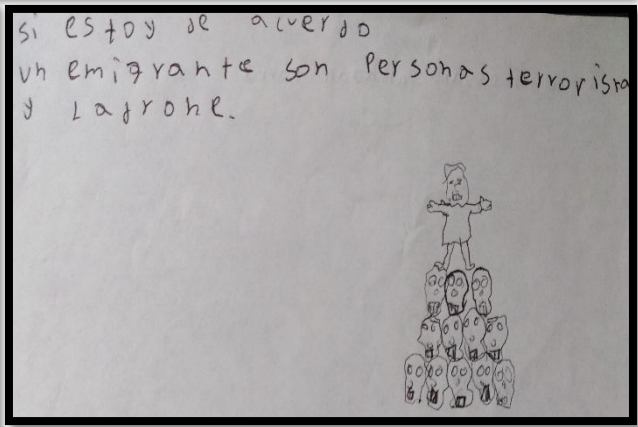 si estoy de acuerdo
un emigrante son Personas terrorista
y Ladrone.